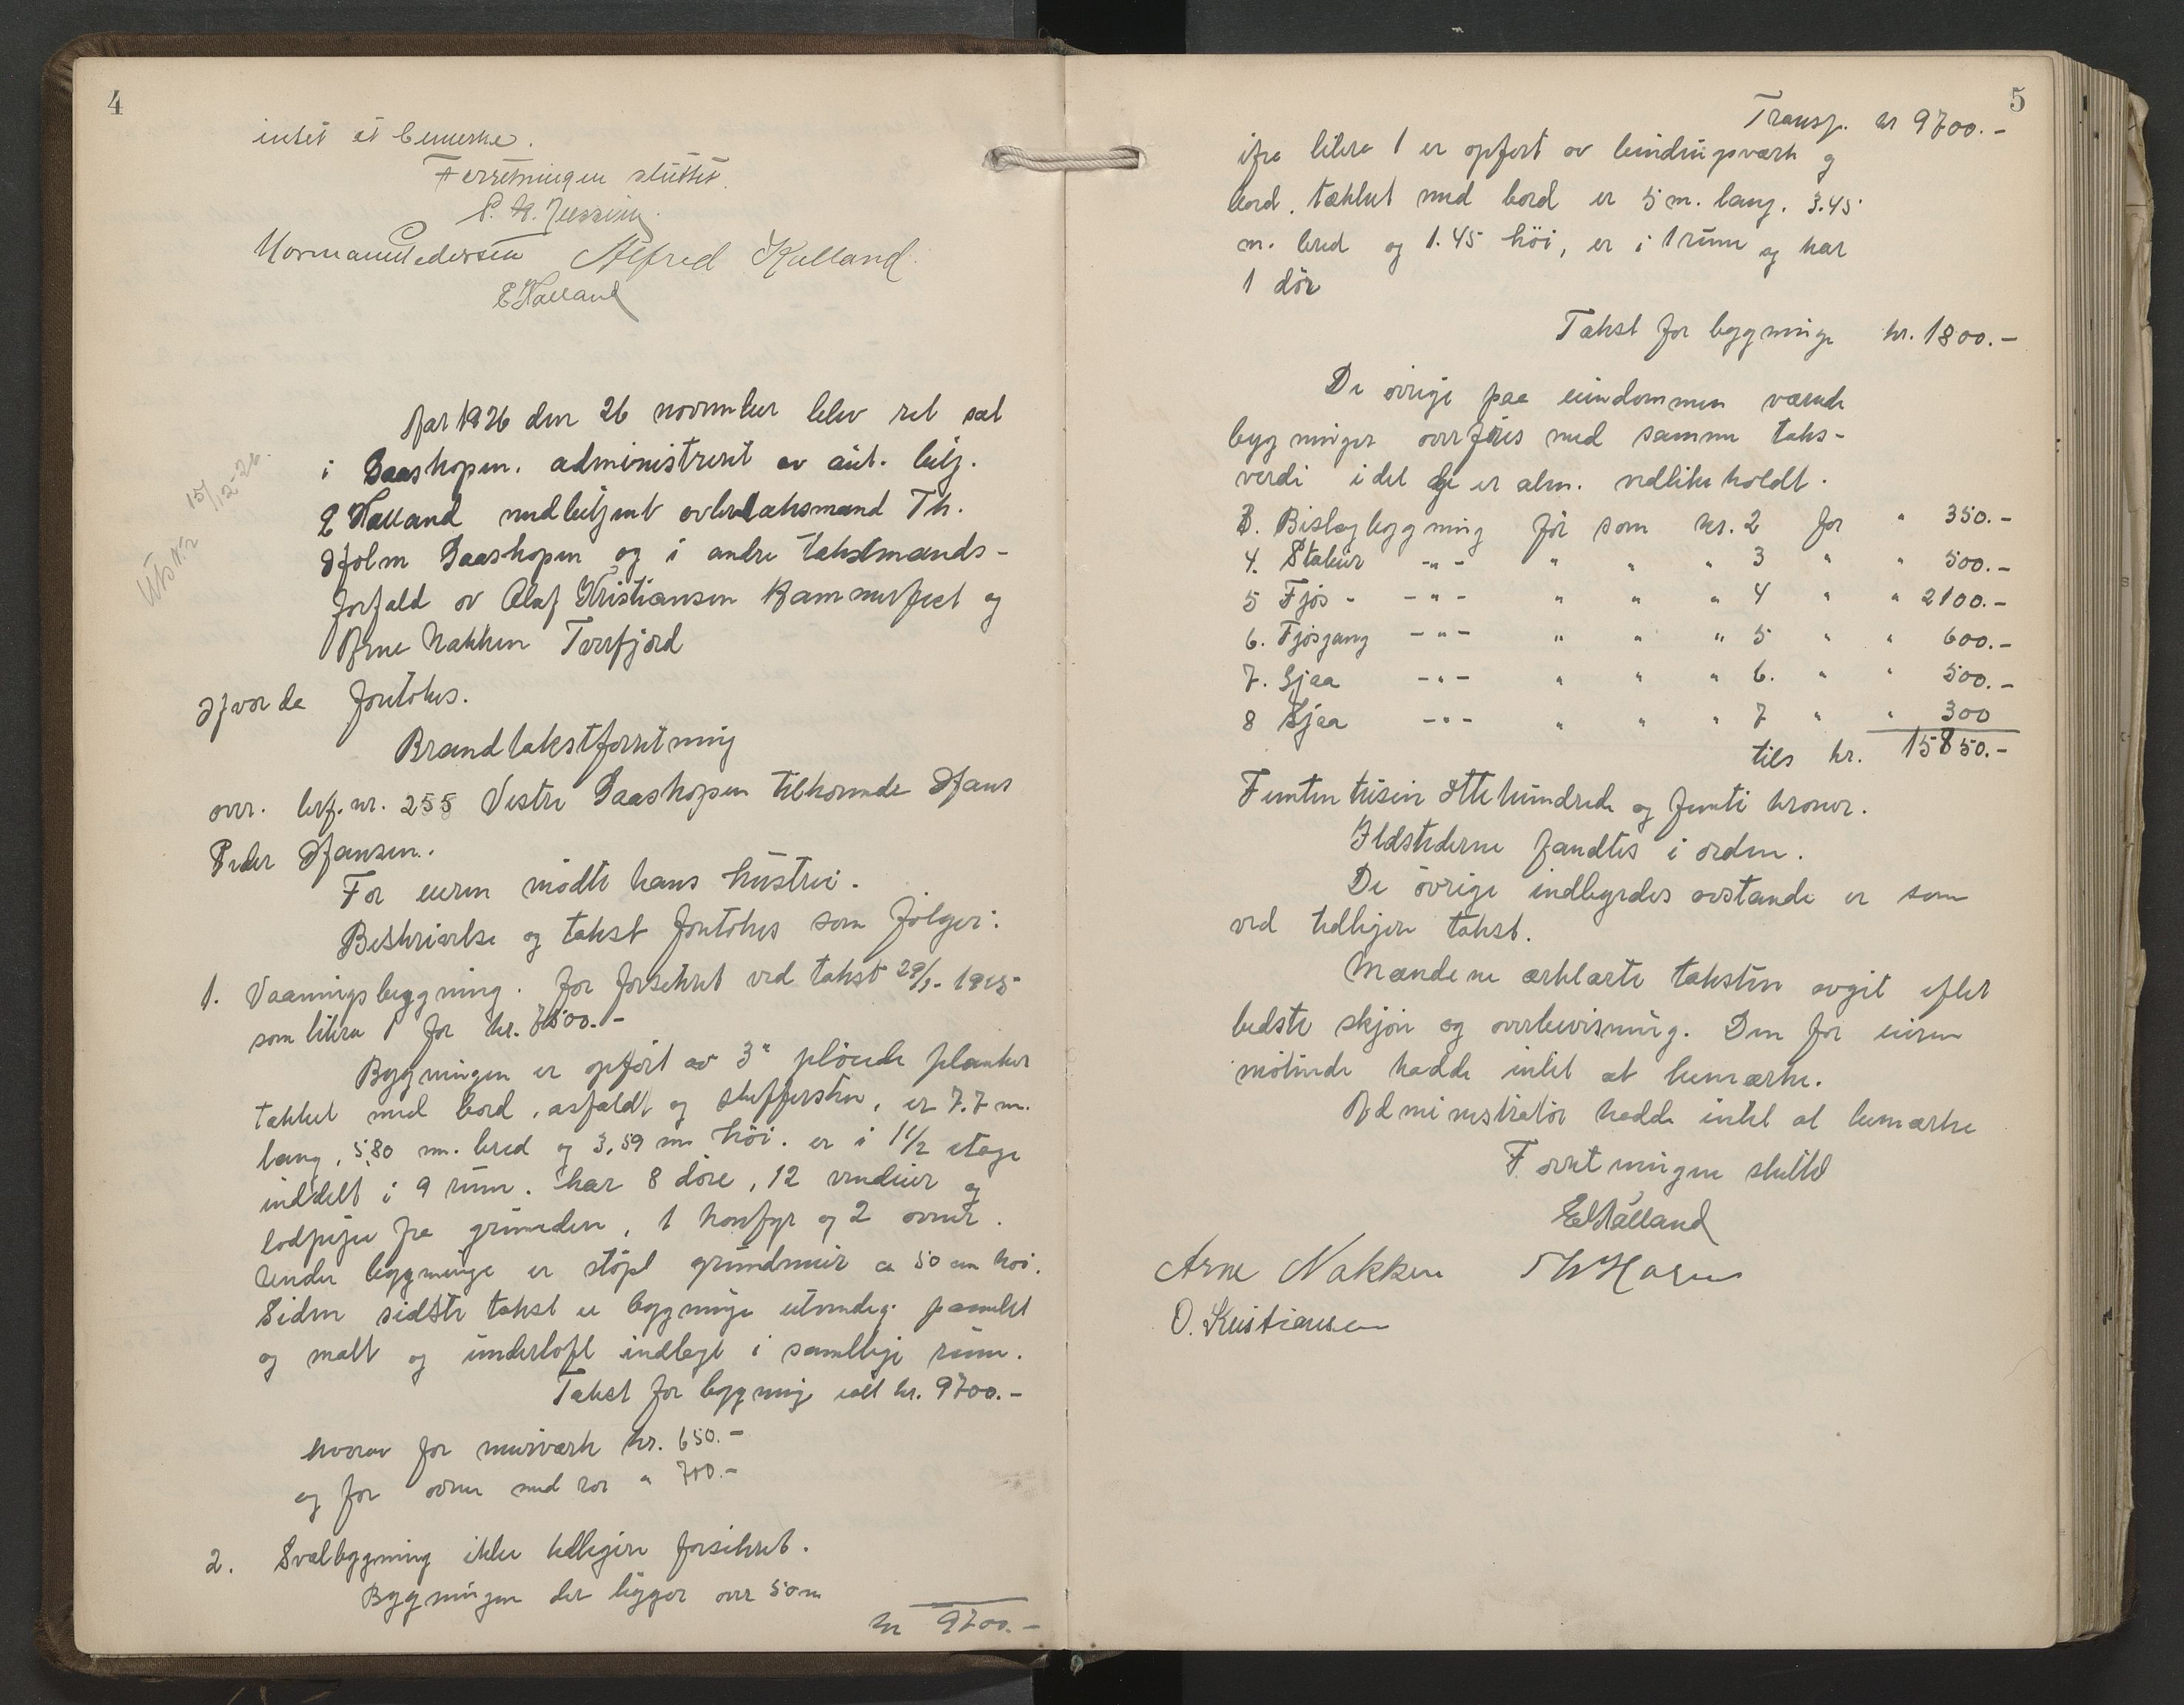 4
intet at bemerke.
Forretningen sluttet.
Normann Pedersen Alfred Kalland
E Halland
Aar 1926 den 26 november blev ret sat
i Saashopen. administrert av aut. lølj.
E Halland medbetjent overtaksmand Th.
Holm Saashopen og i andre takstmænds-
forfald av Olaf Kristiansen Hammerfest og
Arne Nakken Torrfjord
Hvorda foretokes.
Brandtakstforretning
over. brf. nr. 255 Vestre Saashopen tilhørende Hans
Peder Hansen.
For eieren mødte hans hustru.
Beskrivelse og takst foretokes som følger:
1. Vaaningsbygning. før forsikret ved takst 29/1- 1925
som litra 1 for kr. 7500.-
Bygningen er opført av 3" pløiede planker
tækket med bord, asfaldt og skifferstein, er 7.7 m.
lang, 5,80 m. bred og 3,59 m høi. er i 1 1/2 etage
inddelt i 9 rum. har 8 døre, 12 vinduer og
lodpipe fra grunden, 1 komfyr og 2 ovner.
Under bygninge er støpt grundmur ca 50 cm høi.
Siden sidste takst er bygninge utvendig panelet
og malt og underloft indlagt i samtlige rum.
Takst for bygning ialt kr. 9700.-
hvorav for murverk kr. 650.-
og for ovner med rør " 700.-
2. Svalbygning ikke tidligere forsikret.
Bygningen der ligger over 50 m
kr 9700.-
15/12-26.
Utskr
5
Transp. kr 9700.-
ifra litra 1 er opført av bindingsværk og
bord. tækket med bord er 5 m. lang. 3.45
m. bred og 1.45 høi, er i 1 rum og har
1 dør
Takst for bygninge kr. 1800.-
De øvrige paa eiendommen værende
bygninger overføres med samme taks-
verdi idet de er alm. vedlikeholdt.
3. Bislagbygning før som nr. 2 for " 350.-
4. Stabur -"- " " " 3 " " 500.-
5 Fjøs - -"- " " " 4 " " 2100.-
6. Fjøsgang -"- " " " 5 " " 600.-
7. Sjaa -"- " " " 6. " " 500.-
8 Sjaa -"- " " " 7 " " 300
tils kr. 15850.-
Femten tusin Otte hundrede og femti kroner.
Ildstederne fandtes i orden.
De øvrige indbyrdes avstande er som
ved tidligere takst.
Mændene erklærte taksten avgit efter
bedste skjøn og overbevisning. Den for eieren
møtende hadde intet at bemærke.
Administrator hadde intet at bemærke
Forretningen sluttet
E Halland
Arne Nakken Th Holm
O. Kristiansen